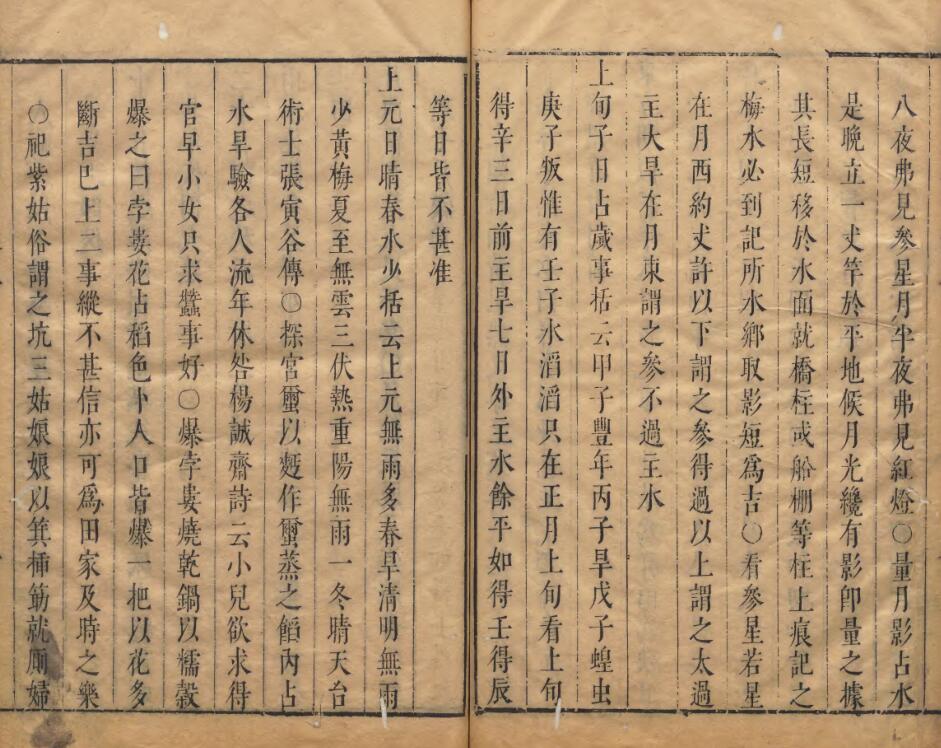 八夜弗見參星月半夜弗見紅燈○量月影占水
是晚立一丈竿於平地候月光纔有影卽量之據
其長短移於水面就橋柱或船棚等柱上痕記之
梅水必到記所水鄉取影短爲吉○看參星若星
在月西約丈許以下謂之參得過以上謂之太過
主大旱在月東謂之參不過主水
上旬子日占歲事括云甲子豐年丙子旱戊子蝗虫
庚子叛惟有壬子水滔滔只在正月上旬看上旬
得辛三日前主旱七日外主水餘平如得壬得辰
等日皆不甚准
上元日晴春水少括云上元無雨多春旱清明無雨
少黃梅夏至無雲三伏熱重陽無雨一冬晴天台
術士張寅谷傳○探官璽以麪作璽蒸之餡內占
水旱驗各人流年休咎楊誠齋詩云小兒欲求得
官早小女只求蠶事好○爆孛婁燒乾鍋以糯穀
爆之曰孛婁花占稻色卜人口皆爆一把以花多
斷吉巳上二事縱不甚信亦可爲田家及時之樂
○祀紫姑俗謂之坑三姑娘娘以箕揷筯就厠婦